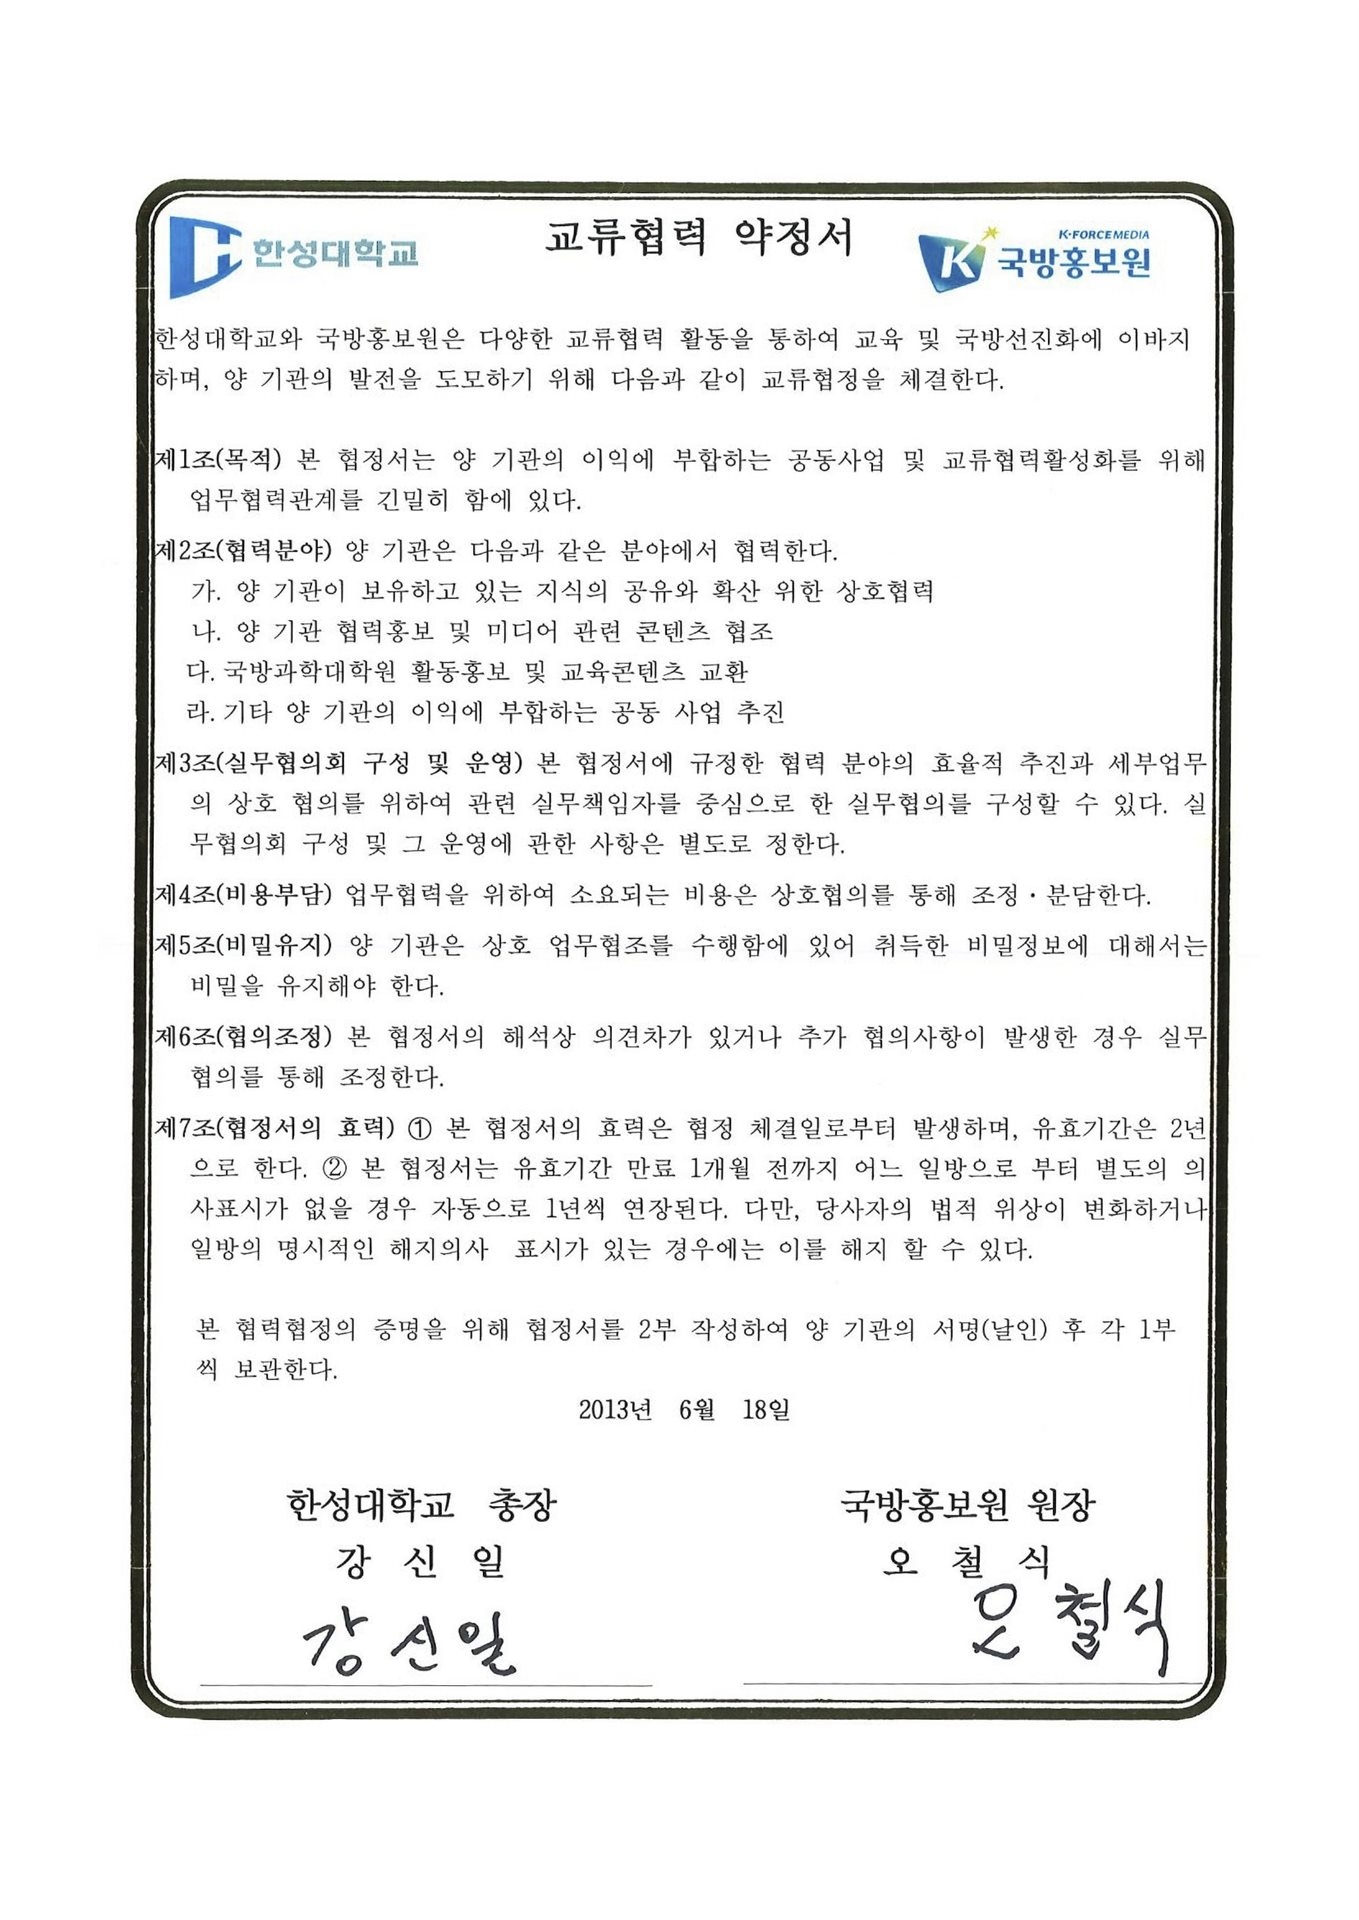 한성대학교
교류협력 약정서
K·FORCE MEDIA
국방홍보원
한성대학교와 국방홍보원은 다양한 교류협력 활동을 통하여 교육 및 국방선진화에 이바지
하며, 양 기관의 발전을 도모하기 위해 다음과 같이 교류협정을 체결한다.
제1조(목적) 본 협정서는 양 기관의 이익에 부합하는 공동사업 및 교류협력활성화를 위해
업무협력관계를 긴밀히 함에 있다.
제2조(협력분야) 양 기관은 다음과 같은 분야에서 협력한다.
가. 양 기관이 보유하고 있는 지식의 공유와 확산 위한 상호협력
나. 양 기관 협력홍보 및 미디어 관련 콘텐츠 협조
다. 국방과학대학원 활동홍보 및 교육콘텐츠 교환
라. 기타 양 기관의 이익에 부합하는 공동 사업 추진
제3조(실무협의회 구성 및 운영) 본 협정서에 규정한 협력 분야의 효율적 추진과 세부업무
의 상호 협의를 위하여 관련 실무책임자를 중심으로 한 실무협의를 구성할 수 있다. 실
무협의회 구성 및 그 운영에 관한 사항은 별도로 정한다.
제4조(비용부담) 업무협력을 위하여 소요되는 비용은 상호협의를 통해 조정·분담한다.
제5조(비밀유지) 양 기관은 상호 업무협조를 수행함에 있어 취득한 비밀정보에 대해서는
비밀을 유지해야 한다.
제6조(협의조정) 본 협정서의 해석상 의견차가 있거나 추가 협의사항이 발생한 경우 실무
협의를 통해 조정한다.
제7조(협정서의 효력) ① 본 협정서의 효력은 협정 체결일로부터 발생하며, 유효기간은 2년
으로 한다. ② 본 협정서는 유효기간 만료 1개월 전까지 어느 일방으로 부터 별도의 의
사표시가 없을 경우 자동으로 1년씩 연장된다. 다만, 당사자의 법적 위상이 변화하거나
일방의 명시적인 해지의사 표시가 있는 경우에는 이를 해지 할 수 있다.
본 협력협정의 증명을 위해 협정서를 2부 작성하여 양 기관의 서명(날인) 후 각 1부
씩 보관한다.
2013년 6월 18일
한성대학교 총장
강 신 일
강 신 일
국방홍보원 원장
오 철 식
오 철식